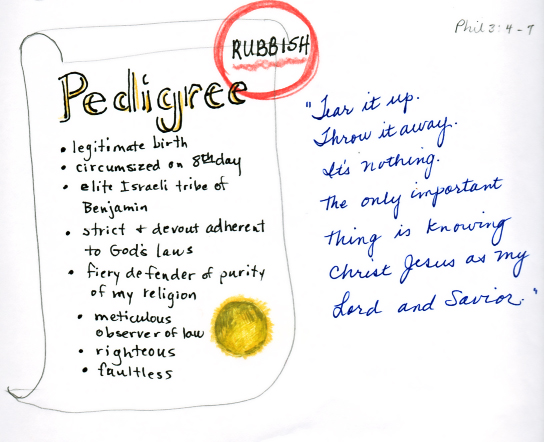 Phil 3:4-9
RUBBISH
Pedigree
• legitimate birth
• circumsized on 8th day
• elite Israeli tribe of
Benjamin
• strict + devout adherent
to God's laws
• fiery defender of purity
of my religion
• meticulous
observer of law
• righteous
• faultless
"Tear it up.
Throw it away.
It's nothing.
The only important
thing is knowing
Christ Jesus as my
Lord and Savior."